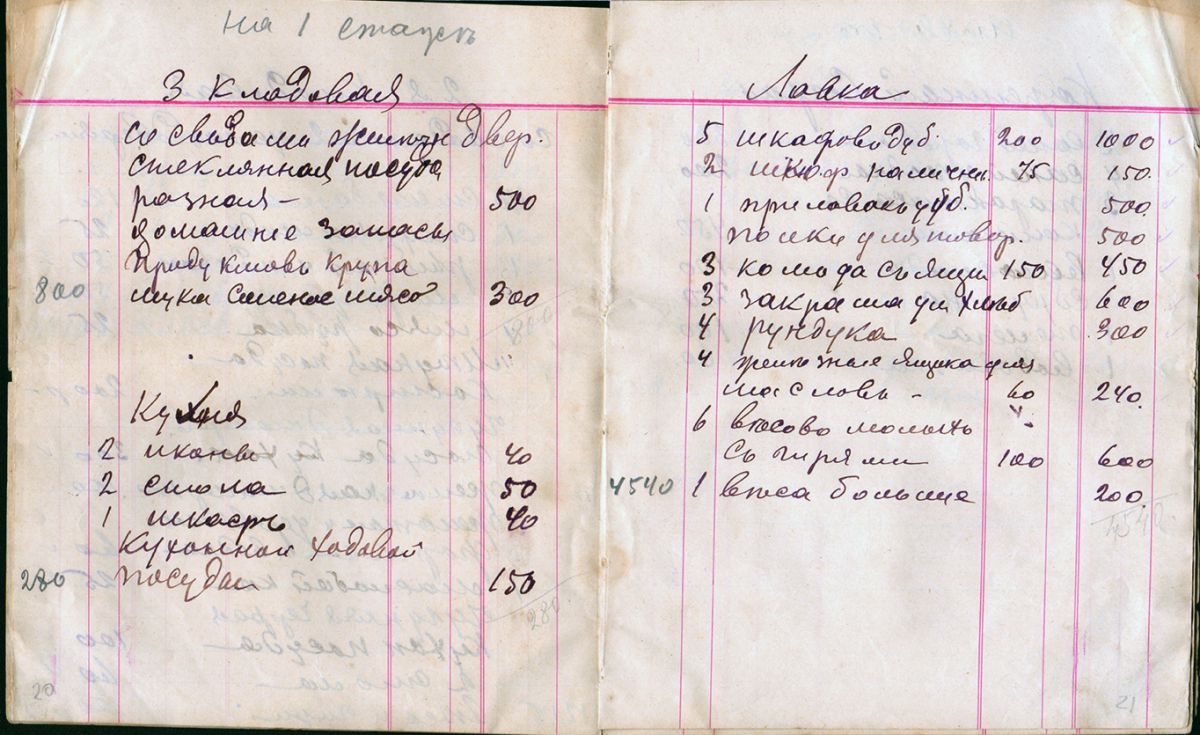 на 1 етаусъ
3 Кладовая
со сводами железн двер.
стеклянная посуда
разная – 500
домашние запасы
продуктовъ крупа
800 мука сменое мясо 300
800
Кухня
2 иконы 40
2 стола 50
1 шкафъ 40
кухонной ходовой
280 посуды 150
280
20
Лавка
5 шкафовъ дуб. 200 1000
2 шкаф наличн. 75 150.
1 прилавокъ дуб. 500.
полки для товар. 500
3 комода съ ящи 150 450
3 закрама для хлеб 600
4 рундука 300
4 железная ящика для
масловъ – 60 240.
6 весово
съ гирями 100 600
4540 1 веса больше 200.
4540
21